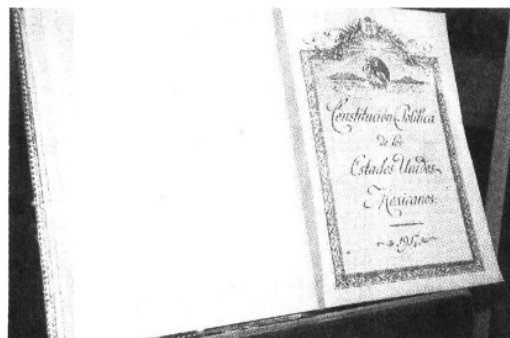 Constitución Política
de los
Estados Unidos
Mexicanos.
1917